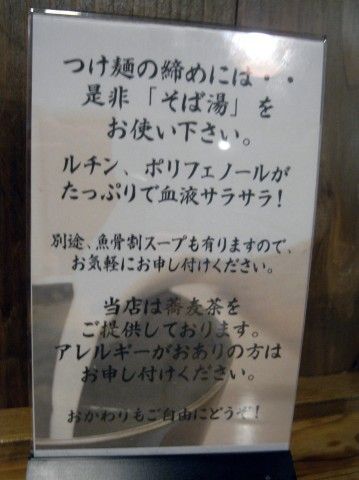 つけ麺の締めには・・
是非「そば湯」を
お使い下さい。
ルチン、ポリフェノールが
たっぷりで血液サラサラ！
別途、魚骨割スープも有りますので、
お気軽にお申し付けください。
当店は蕎麦茶を
ご提供しております。
アレルギーがおありの方は
お申し付けください。
おかわりもご自由にどうぞ！